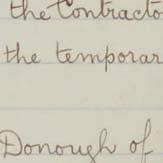 the Contracto
the temporar
Donough of